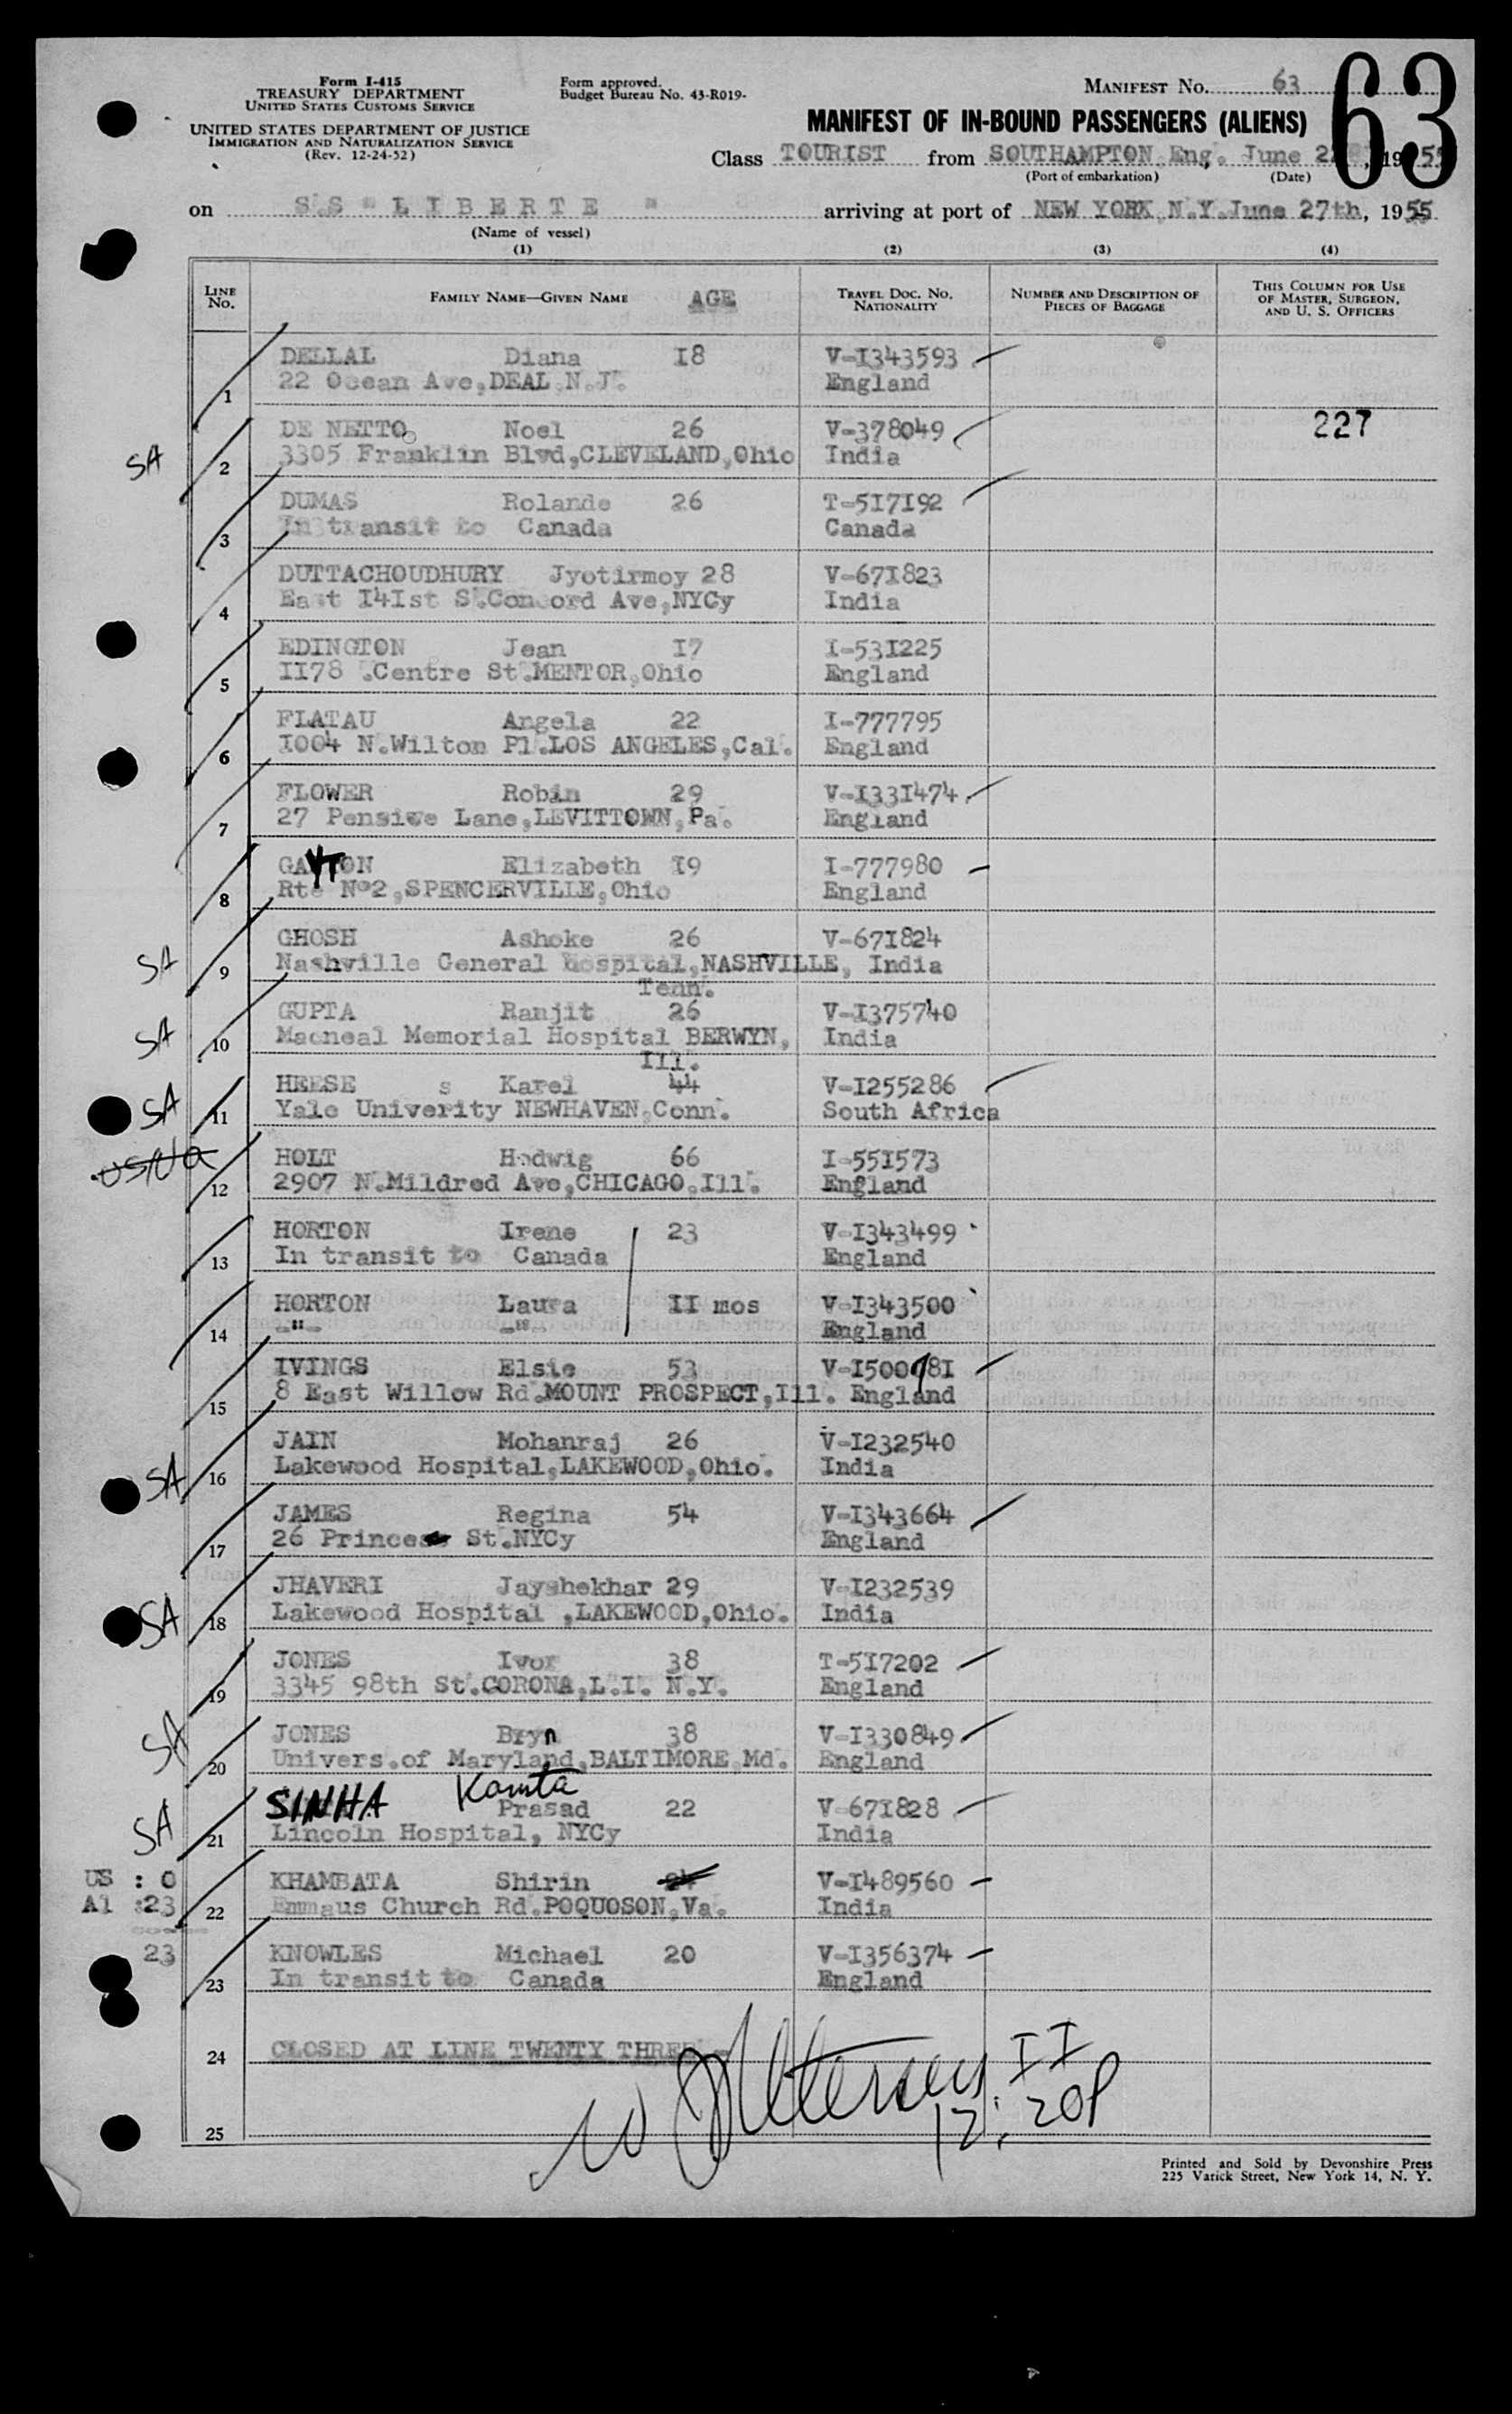 Form I-415
TREASURY DEPARTMENT
UNITED STATES CUSTOMS SERVICE
UNITED STATES DEPARTMENT OF JUSTICE
IMMIGRATION AND NATURALIZATION SERVICE
(Rev. 12-24-52)
Form approved.
Budget Bureau No. 43-R019-
MANIFEST NO. 63
63
MANIFEST OF IN-BOUND PASSENGERS (ALIENS)
Class TOURIST from SOUTHAMPTON Eng. June 22, 1955
(Port of embarkation) (Date)
on S.S "LIBERTE" arriving at port of NEW YORK,N.Y.June 27th, 1955
(Name of vessel)
(1) (2) (3) (4)
LINE No. FAMILY NAME—GIVEN NAME AGE TRAVEL DOC. NO. NATIONALITY NUMBER AND DESCRIPTION OF PIECES OF BAGGAGE THIS COLUMN FOR USE OF MASTER, SURGEON, AND U. S. OFFICERS
1 DELLAL Diana I8 V-I343593
22 Ocean Ave,DEAL,N.J. England
SA 2 DE NETTO Noel 26 V-378049 227
3305 Franklin Blvd,CLEVELAND,Ohio India
3 DUMAS Rolande 26 T-5I7I92
In transit to Canada Canada
4 DUTTACHOUDHURY Jyotirmoy 28 V-67I823
East I4Ist S.Concord Ave,NYCy India
5 EDINGTON Jean I7 I-53I225
II78 .Centre St.MENTOR,Ohio England
6 FLATAU Angela 22 I-777795
I004 N.Wilton Pl.LOS ANGELES,Cal. England
7 FLOWER Robin 29 V-I33I474
27 Pensive Lane,LEVITTOWN,Pa. England
8 GAYTON Elizabeth I9 I-777980
Rte No2,SPENCERVILLE,Ohio England
SA 9 GHOSH Ashoke 26 V-67I824
Nashville General Hospital,NASHVILLE, India
Tenn.
SA 10 GUPTA Ranjit 26 V-I375740
Macneal Memorial Hospital BERWYN, India
Ill.
SA 11 HEESE s Karel 44 V-I255286
Yale Univerity NEWHAVEN,Conn. South Africa
USNA 12 HOLT Hedwig 66 I-55I573
2907 N.Mildred Ave,CHICAGO,Ill. England
13 HORTON Irene 23 V-I343499
In transit to Canada England
14 HORTON Laura II mos V-I343500
-"- -"- England
15 IVINGS Elsie 53 V-I500981
8 East Willow Rd.MOUNT PROSPECT,Ill. England
SA 16 JAIN Mohanraj 26 V-I232540
Lakewood Hospital,LAKEWOOD,Ohio. India
17 JAMES Regina 54 V-I343664
26 Prince St.NYCy England
SA 18 JHAVERI Jayshekhar 29 V-I232539
Lakewood Hospital ,LAKEWOOD,Ohio. India
19 JONES Ivor 38 T-5I7202
3345 98th St.CORONA,L.I. N.Y. England
SA 20 JONES Bryn 38 V-I330849
Univers.of Maryland,BALTIMORE,Md. England
SA 21 SINHA Kamta Prasad 22 V-67I828
Lincoln Hospital, NYCy India
US : 0
Al :23
22 KHAMBATA Shirin 24 V-I489560
Emmaus Church Rd.POQUOSON,Va. India
23
23 KNOWLES Michael 20 V-I356374
In transit to Canada England
24 CLOSED AT LINE TWENTY THREE-
II
12:20P
25
Printed and Sold by Devonshire Press
225 Varick Street, New York 14, N. Y.